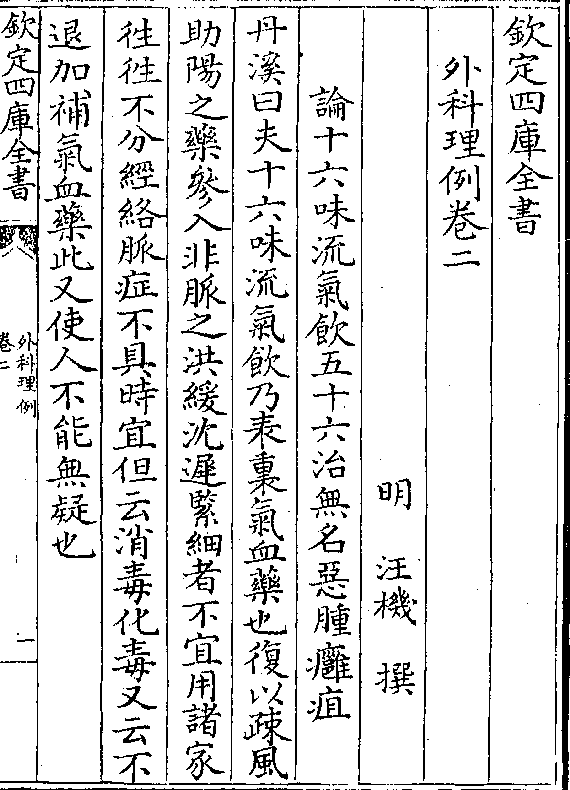 欽定四庫全書
外科理例卷二
明 汪機 撰
論十六味流氣飲五十六治無名惡腫癰疽
丹溪曰夫十六味流氣飲乃表裏氣血藥也復以疎風
助陽之藥參入非脈之洪緩沈遲緊細者不宜用諸家
徃徃不分經絡脈症不具時宜但云消毒化毒又云不
退加補氣血藥此又使人不能無疑也
欽定四庫全書
外科理例
卷二
一